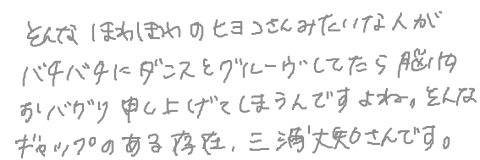 そんな ほわほわの ヒヨコさんみたいな人が
バチバチに ダンスを グルーヴしてたら 脳内
おバグり 申し上げてしまうんですよね。そんな
ギャップのある 存在、三浦大知さんです。